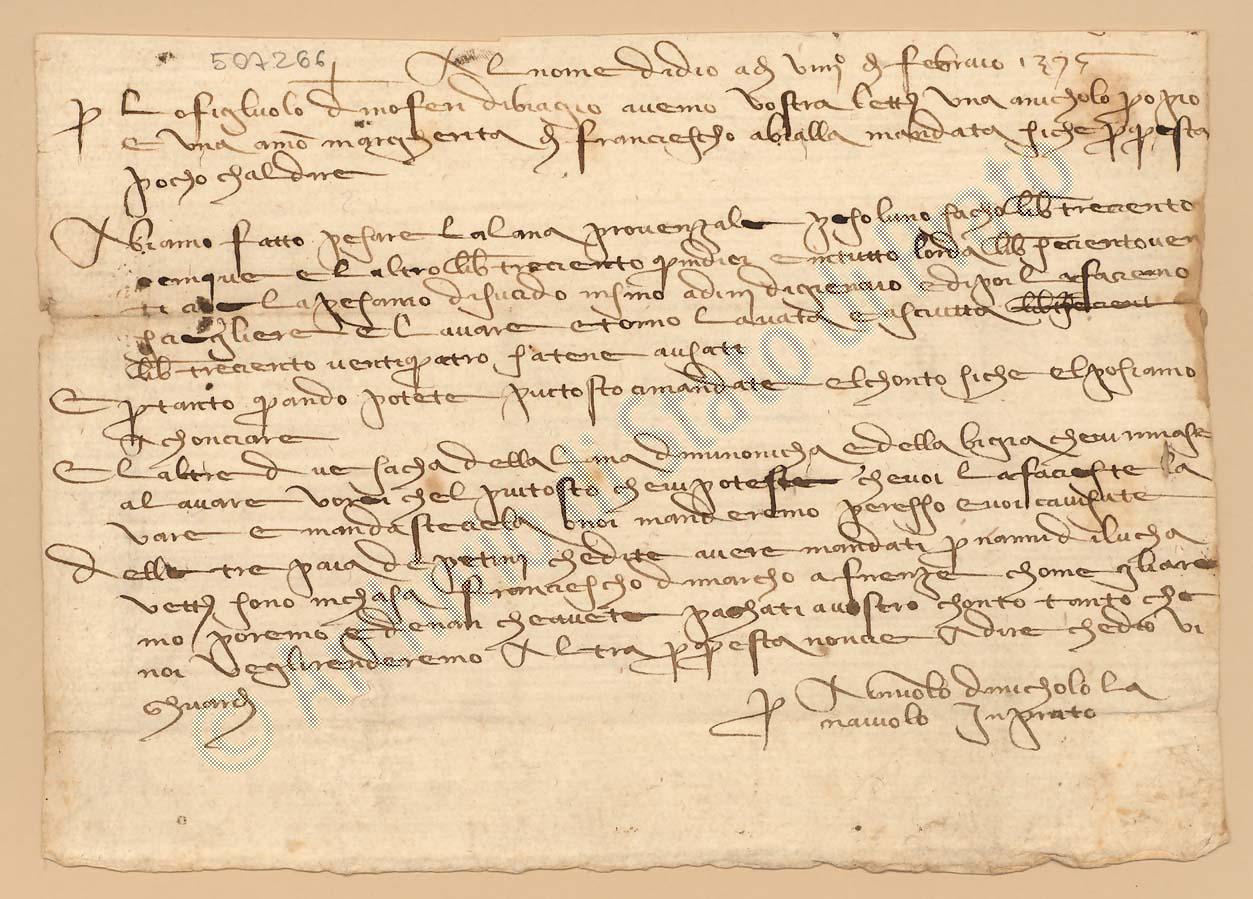 507266
Al nome di dio adi viiii° di febraio 1395
p lo figluolo di moseri di biagio avemo vostra lettera una a nicholo p opio
e una a mo margherita di franciescho abialla mandata siche p questa
pocho cha l dire
Abiamo fatto pesare la lana provenzale peso luno sacho lib trecento
cinque e l altro lib treciento quindici e in tutto lorda lib seciento ven
ti la pesamo di sucido insino adi di giennaio e di poi la faciemo
sciegliere e lavare e torno lavata e asciutta
lib treciento ventiquatro siatene avisati
E p tanto quando potete piu tosto ci mandate el chonto siche el posiamo
achonciare
El altre due sacha della lana di minoricha e della bigia che vi rimase
a lavare vorei chel piu tosto che voi poteste che voi la facieste la
vare e mandasteciela o noi manderemo per esso e voi c avisate
delle tre paia di petini che dite avere mandati p nanni di lucha
vetturale sono in chasa franciescho di marcho a firenze chome gli are
mo poremo e denari che avete paghati a vostro chonto tanto che
noi ve gli renderemo Altra p questa non ci e a dire che dio vi
ghuardi
p Agniolo di nicholo la
naiuolo In prato
© Archivio di Stato di Prato